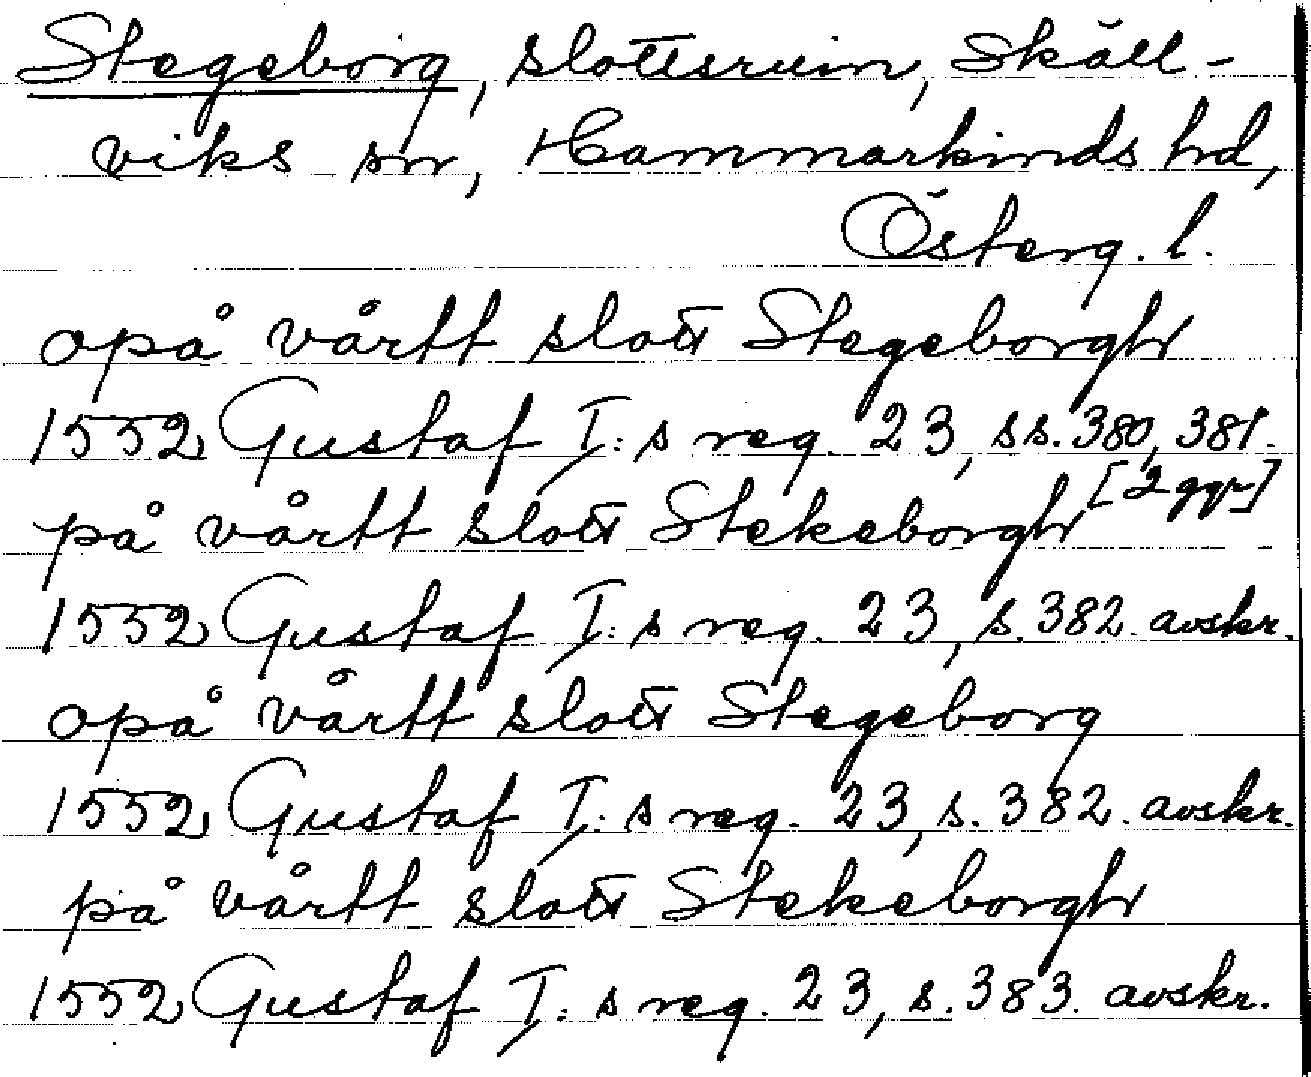 Stegeborg, slottsruin, Skäll-
viks sn, Hammarkinds hd,
Österg. l.
opå vårtt slott Stegeborgh
1552 Gustaf I:s reg. 23, ss. 380, 381.
[2 ggr]
på vårtt slott Stekeborgh
1552 Gustaf I:s reg. 23, s. 382. avskr.
opå vårtt slott Stegeborg
1552 Gustaf I:s reg. 23, s. 382. avskr.
på vårtt slott Stekeborgh
1552 Gustaf I:s reg. 23, s. 383. avskr.